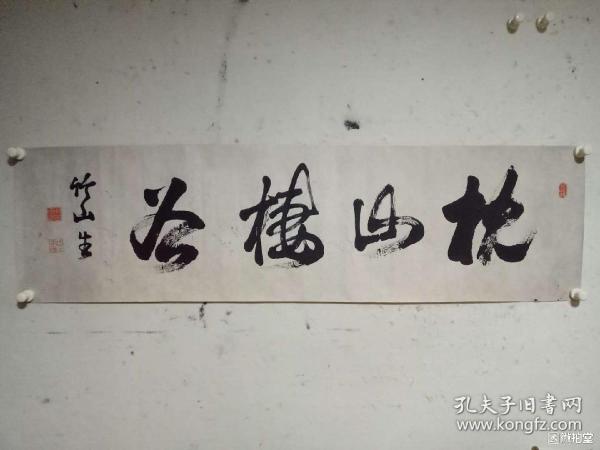 枕山棲谷
竹山生
孔夫子旧书网
www.kongfz.com